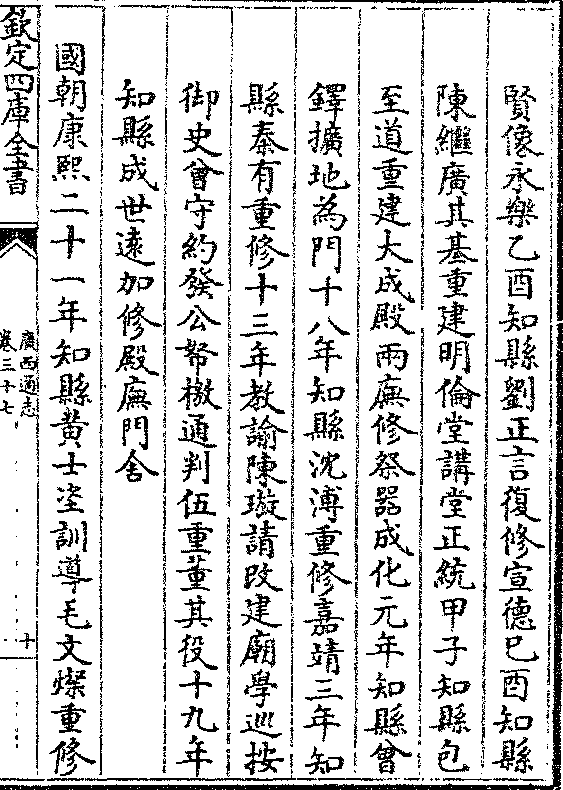 賢像永樂乙酉知縣劉正言復修宣德己酉知縣
陳繼廣其基重建明倫堂講堂正統甲子知縣包
至道重建大成殿兩廡修祭器成化元年知縣曾
鐸擴地為門十八年知縣沈溥重修嘉靖三年知
縣秦有重修十三年教諭陳璇請改建廟學巡按
御史曾守約發公帑檄通判伍重董其役十九年
知縣成世遠加修殿廡門舍
國朝康熙二十一年知縣黄士㳩訓導毛文燦重修
欽定四庫全書
廣西通志
卷三十七
十